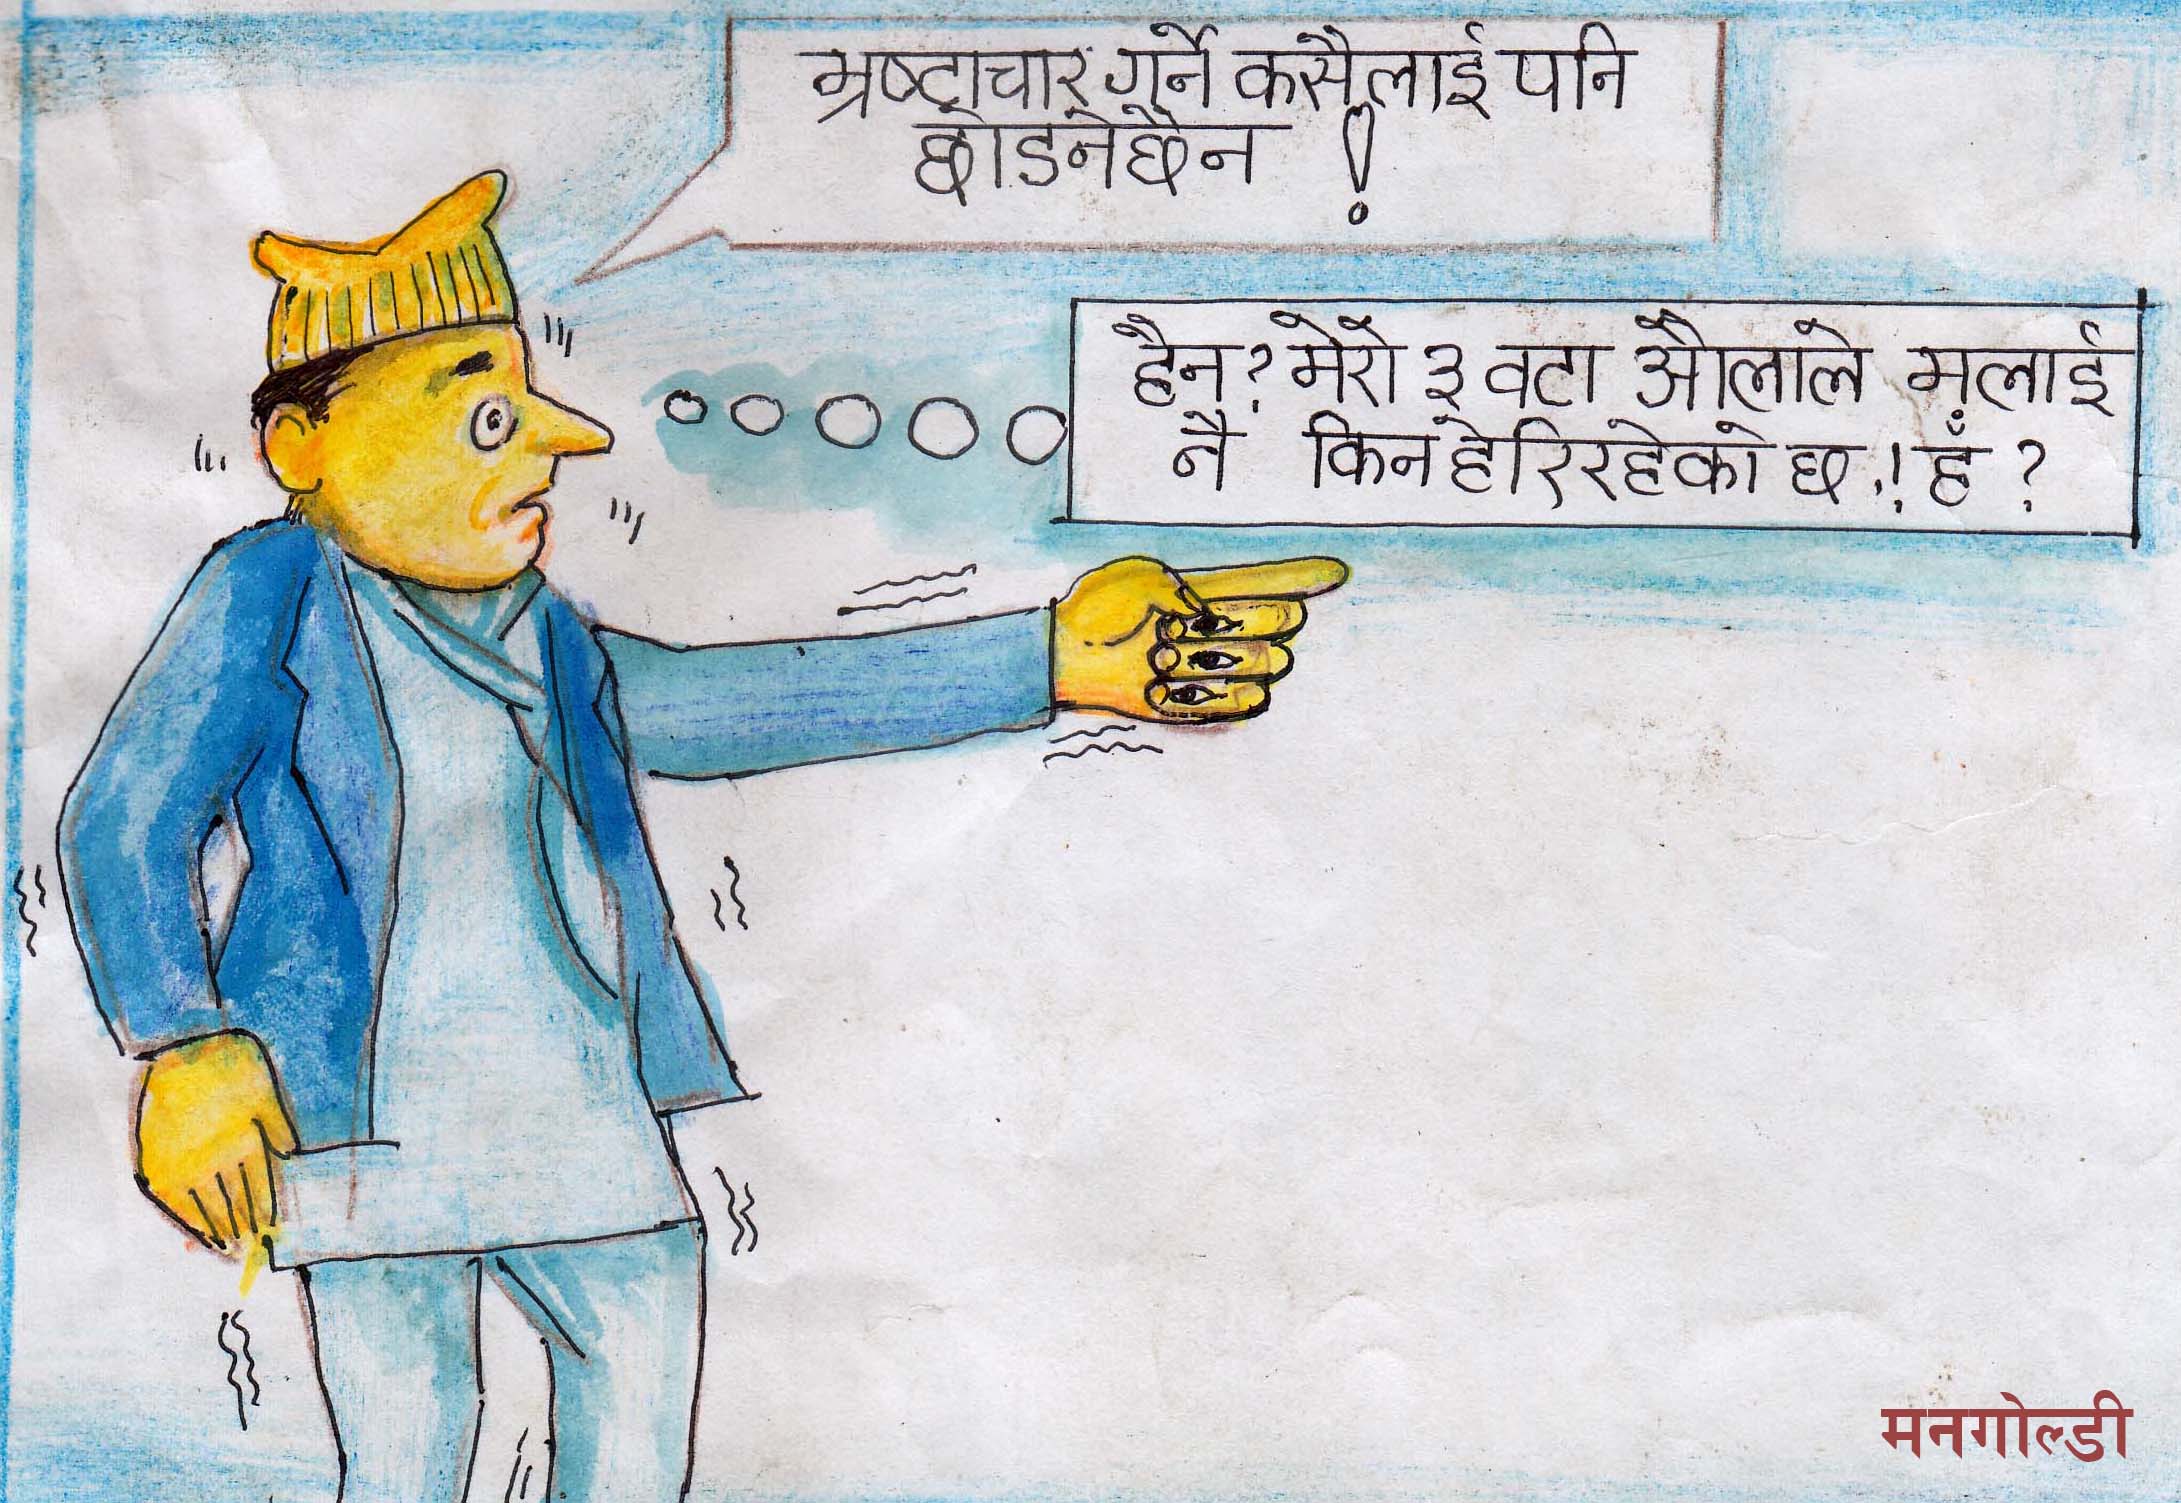 भ्रष्टाचार गर्ने कसैलाई पनि
छोडनेछैन !
हैन? मेरो ३ वटा औलाले मलाई
नै किन हेरिरहेको छ.! हँ ?
मनगोल्डी